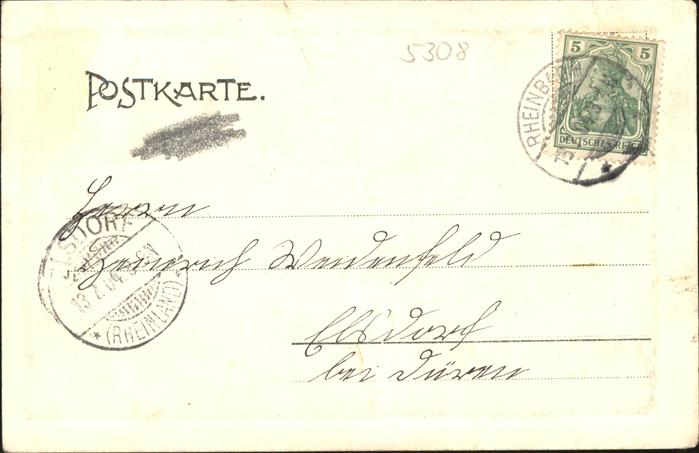 5308
POSTKARTE.
5 5
DEUTSCHES REICH
RHEINBACH
Herrn
Heinrich Weidenfeld
Elsdorf
bei Düren
ELSDORF
(RHEINLAND)